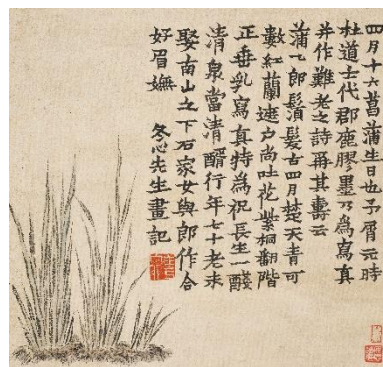 四月十六菖蒲生日也予屑元時
杜道士代郡鹿膠墨乃為寫真
并作難老之詩爯其壽云
蒲〻郎鬚髮古四月楚天青可
數紅蘭遮戶尚吐花紫桐翻階
正垂乳寫真特為祝長生一醆
清泉當清醑行年七十老未
娶南山之下石家女與郎作合
好眉嫵 冬心先生畫記